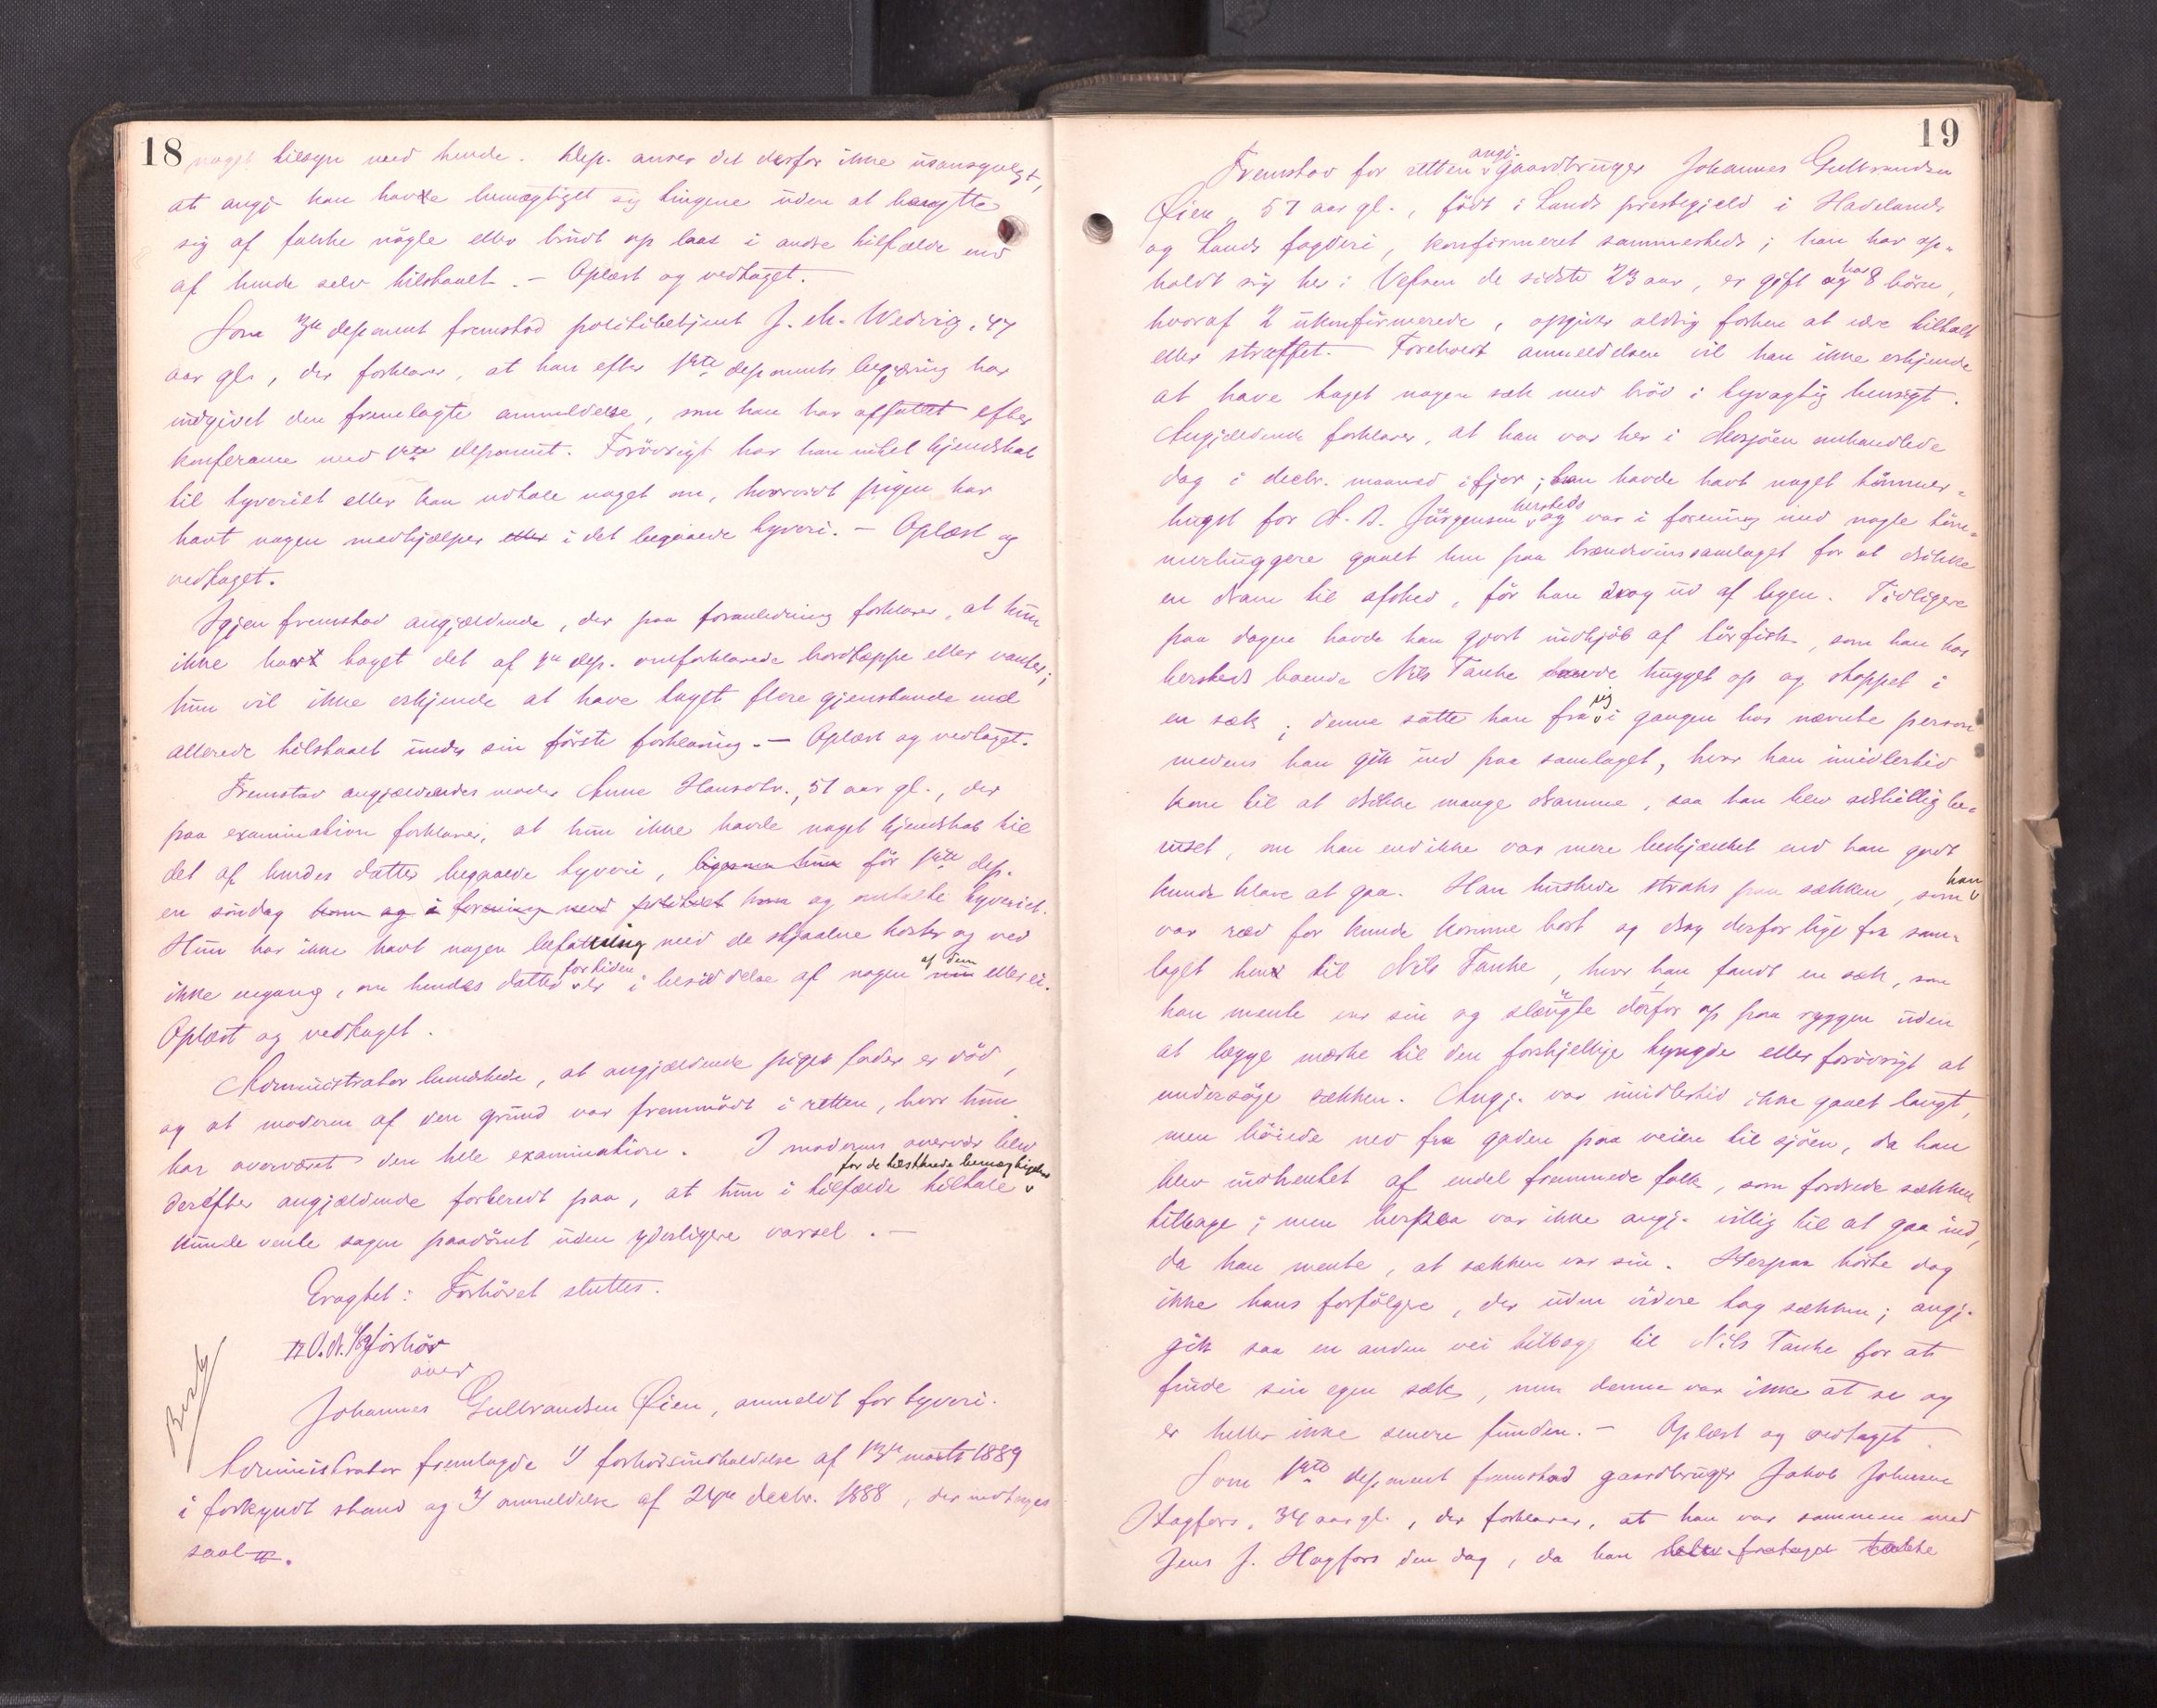 18
noget tilsyn med hende. Dep. anser det derfor ikke usansynligt,
at angj. kan have bemægtiget sig tingene uden at benytte
sig af falske nøgle eller brudt op laas i andre tilfælde end
af hende selv tilstaaet. – Oplæst og vedtaget.
Som 3die deponent fremstod politibetjent J. M. Wedvig, 47
aar gl., der forklarer, at han efter 1ste deponents begjæring har
indgivet den fremlagte anmeldelse, som han har affattet efter
konferance med 1ste deponent. Forøvrigt har han intet kjendskab
til tyveriet eller kan udtale noget om, hvorvidt pigen har
havt nogen medhjælper eller i det begaaede tyveri. – Oplæst og
vedtaget.
Igjen fremstod angjældende, der paa foranledning forklarer, at hun
ikke har taget det af 1ste dep. omforklarede bordtæppe eller vanter;
hun vil ikke erkjende at have taget flere gjenstande end
allerede tilstaaet under sin første forklaring. – Oplæst og vedtaget.
Fremstod angjældendes moder Anne Hansdtr., 51 aar gl., der
paa examination forklarer, at hun ikke havde noget kjendskab til
det af hendes datter begaaede tyveri, ligesom hun før 1ste dep.
en søndag kom og i forening med politiet kom og omtalte tyveriet.
Hun har ikke havt nogen befatning med de stjaalne koster og ved
ikke engang, om hendes datter for tiden er i besiddelse af nogen af dem eller ei.
Oplæst og vedtaget.
Administrator bemærkede, at angjældende piges fader er død,
og at moderen af den grund var fremmødt i retten, hvor hun
har overværet den hele examination. I moderens overvær blev
for de tilstaaede bemægtigelser
derefter angjældende forberedt paa, at hun i tilfælde tiltale
kunde vente sagen paadømt uden yderligere varsel. –
Eragtet: Forhøret sluttes.
forhør
over
Johannes Gulbrandsen Øien, anmeldt for tyveri.
Administrator fremlagde 1) forhørsindkaldelse af 13de marts 1889
i forkyndt stand og 2) anmeldelse af 24de decbr. 1888, der modtoges
saal.
19
angj.
Fremstod for retten gaardbruger Johannes Gulbrandsen
Øien, 57 aar gl., født i Lands prestegjeld i Hadelands
og Lands fogderi, konfirmeret sammesteds; han har op-
holdt sig her i Vefsen de sidste 23 aar, er gift og har 8 børn,
hvoraf 2 ukonfirmerede, opgives aldrig forhen at være tiltalt
eller straffet. – Foreholdt anmeldelsen vil han ikke erkjende
at have taget nogen sæk med brød i tyvagtig hensigt.
Angjældende forklarer, at han var her i Mosjøen omhandlede
dag i decbr. maaned ifjor; han havde havt noget tømmer-
hersteds
hugst for A. B. Jürgensen og var i forening med nogle tøm-
merhuggere gaaet hen paa brændevinssamlaget for at drikke
en dram til afsked, før han drog ud af byen. Tidligere
paa dagen havde han gjort indkjøb af tørfisk, som han hos
hersteds boende Nils Tanke havde hugget op og stoppet i
en sæk; denne satte han fra sig i gangen hos nævnte person
medens han gik ind paa samlaget, hvor han imidlertid
kom til at drikke mange dramme, saa han blev adskillig be-
ruset, om han endikke var mere beskjænket end han godt
kunde klare at gaa. Han huskede straks paa sækken, som han
var ræd for kunde komme bort og drog derfor lige fra sam-
laget hen til Nils Tanke, hvor han fandt en sæk, som
han mente var sin og slængte derfor op paa ryggen uden
at lægge mærke til den forskjellige tyngde eller forøvrigt at
undersøge sækken. Angj. var imidlertid ikke gaaet langt,
men bøiede ned fra gaden paa veien til sjøen, da han
blev indhentet af endel fremmede folk, som fordrede sækken
tilbage; men herpaa var ikke angj. villig til at gaa ind,
da han mente, at sækken var sin. Herpaa hørte dog
ikke hans forfølgere, der uden videre tog sækken; angj.
gik saa en anden vei tilbage til Nils Tanke for at
finde sin egen sæk, men denne var ikke at se og
er heller ikke senere funden. – Oplæst og vedtaget.
Som 1ste deponent fremstod gaardbruger Jakob Johnsen
Hagfors, 34 aar gl., der forklarer, at han var sammen med
Jens J. Hagfors den dag, da han